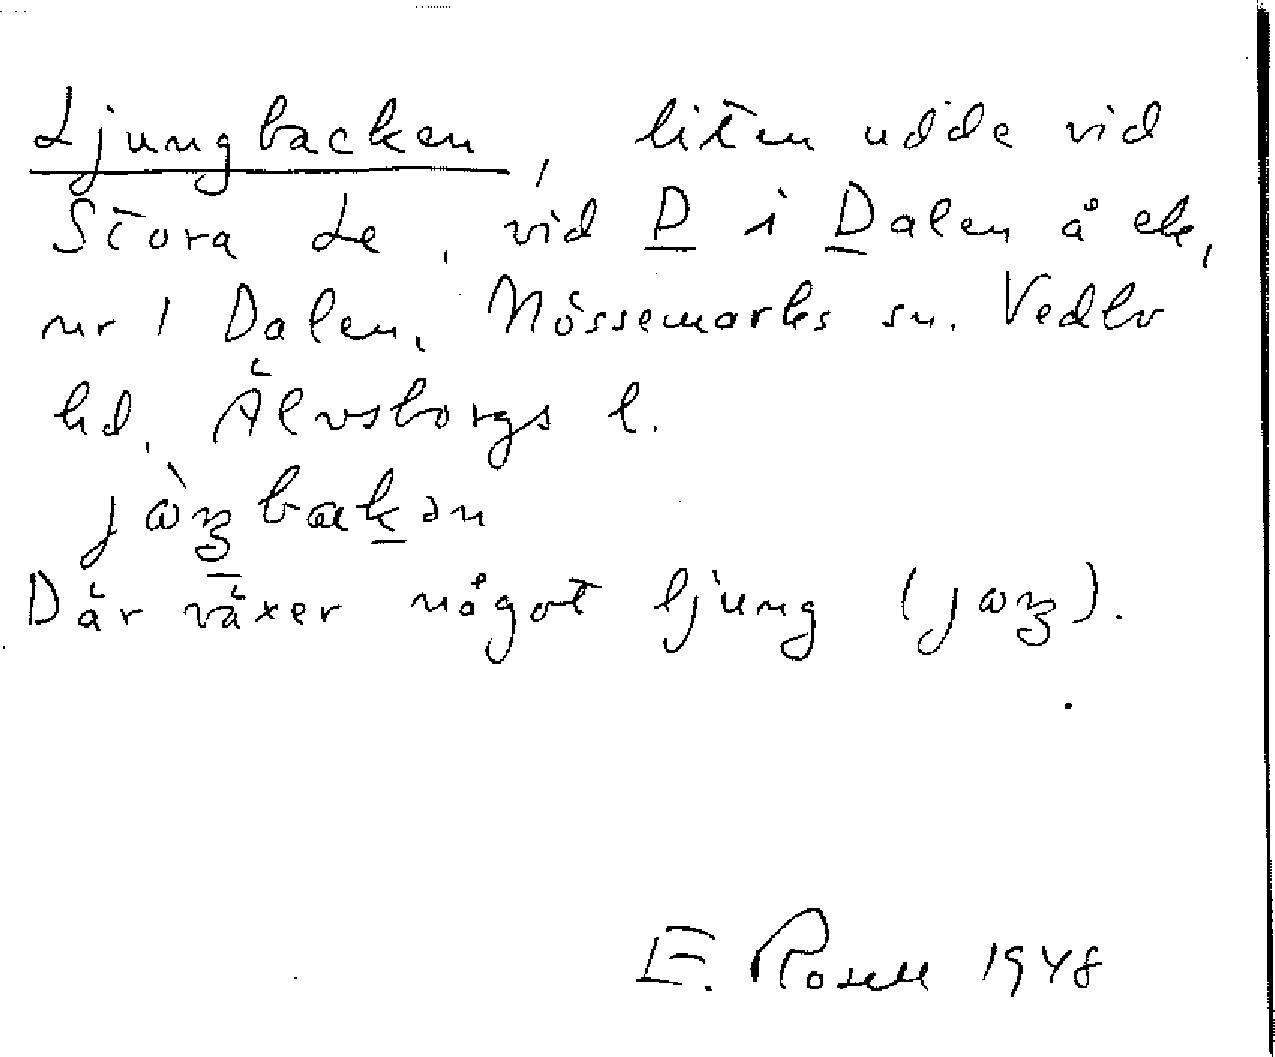 Ljungbacken, liten udde vid
Stora Le, vid D i Dalen å ek,
nr 1 Dalen, Nössemarks sn. Vedbo
hd, Älvsborgs l.
Där växer något ljung
E. Rosell 1948